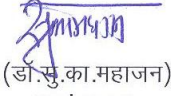 (डॉ.सु.का.महाजन)